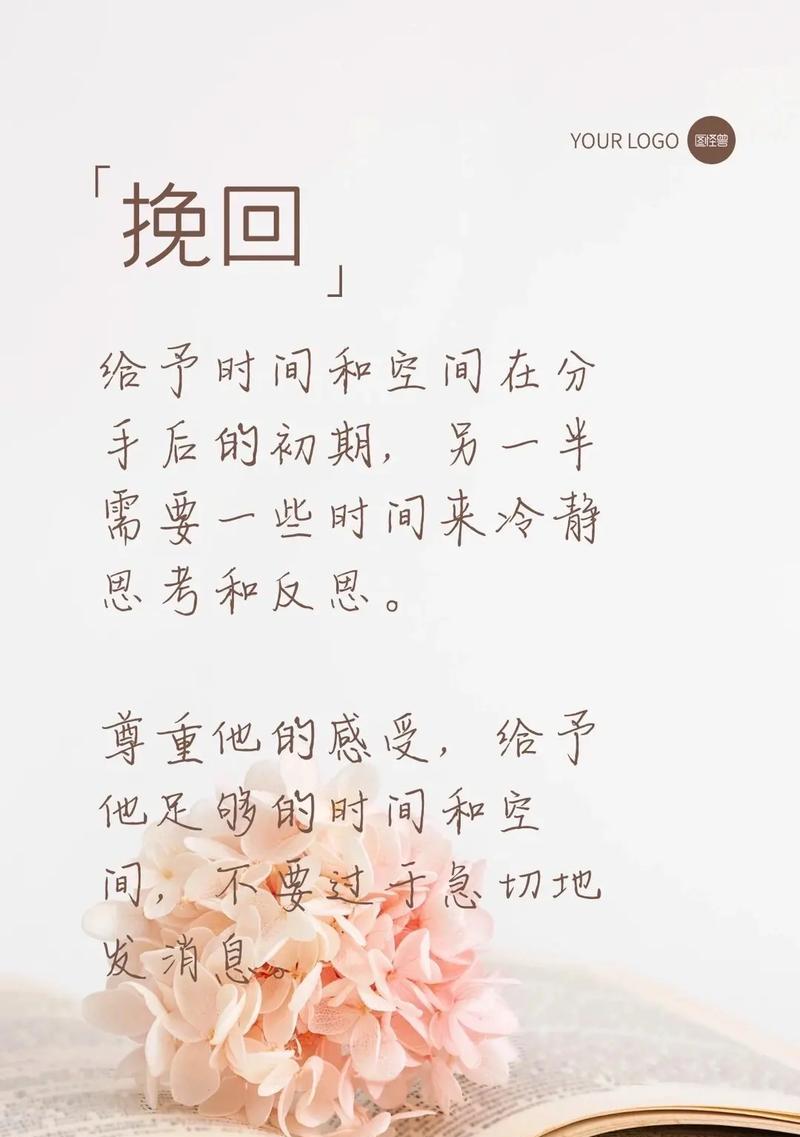 YOUR LOGO 图怪兽
「挽回」
给予时间和空间在分
手后的初期，另一半
需要一些时间来冷静
思考和反思。
尊重他的感受，给予
他足够的时间和空
间，不要过于急切地
发消息。